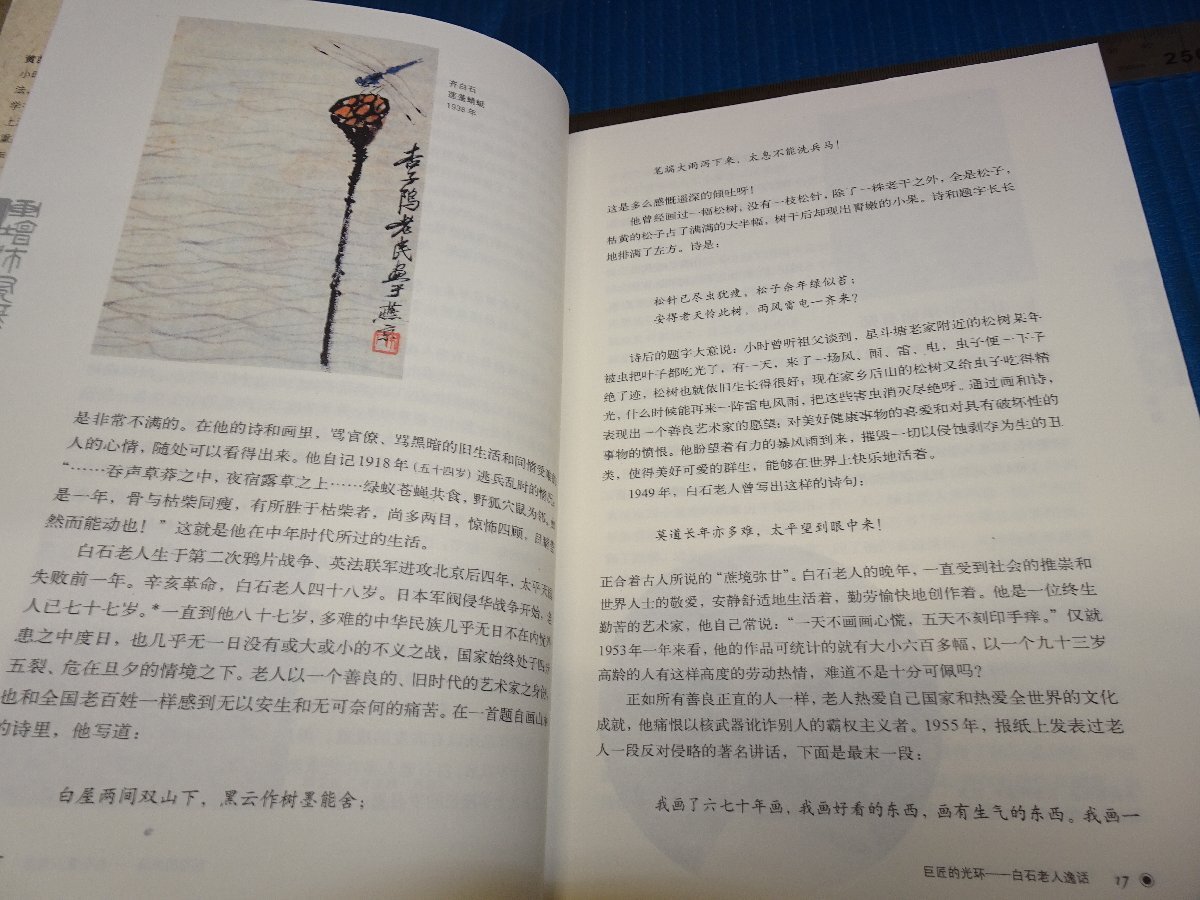 齐白石
莲蓬蜻蜓
1938年
杏子隝老民画于
燕京
是非常不满的。在他的诗和画里，骂官僚、骂黑暗的旧生活和同情受
人的心情，随处可以看得出来。他自记1918年（五十四岁）逃兵乱时的情
“……吞声草莽之中，夜宿露草之上……绿蚁苍蝇共食，野狐穴鼠为邻。
是一年，骨与枯柴同瘦，有所胜于枯柴者，尚多两目，惊怖四顾，目
然而能动也！”这就是他在中年时代所过的生活。
白石老人生于第二次鸦片战争、英法联军进攻北京后四年，太平天国
失败前一年。辛亥革命，白石老人四十八岁。日本军阀侵华战争开始，老
人已七十七岁。*一直到他八十七岁，多难的中华民族几乎无日不在内忧外
患之中度日，也几乎无一日没有或大或小的不义之战，国家始终处于四分
五裂、危在旦夕的情境之下。老人以一个善良的、旧时代的艺术家之身
也和全国老百姓一样感到无以安生和无可奈何的痛苦。在一首题自画山水
的诗里，他写道：
白屋两间双山下，黑云作树墨能舍；
笔端大雨泻下来，太息不能洗兵马！
这是多么感慨遥深的倾吐呀！
他曾经画过一幅松树，没有一枝松针，除了一株老干之外，全是松子，
枯黄的松子占了满满的大半幅，树干后却现出青嫩的小果。诗和题字长长
地排满了左方。诗是：
松针已尽虫犹瘦，松子余年绿似苔；
安得老天怜此树，雨风雷电一齐来？
诗后的题字大意说：小时曾听祖父谈到，星斗塘老家附近的松树某年
被虫把叶子都吃光了，有一天，来了一场风、雨、雷、电，虫子便一下子
绝了迹，松树也就依旧生长得很好；现在家乡后山的松树又给虫子吃得精
光，什么时候能再来一阵雷电风雨，把这些害虫消灭尽绝呀。通过画和诗，
表现出一个善良艺术家的愿望；对美好健康事物的喜爱和对具有破坏性的
事物的愤恨。他盼望着有力的暴风雨到来，摧毁一切以侵蚀剥夺为生的丑
类，使得美好可爱的群生，能够在世界上快乐地活着。
1949年，白石老人曾写出这样的诗句：
莫道长年亦多难，太平望到眼中来！
正合着古人所说的“蔗境弥甘”。白石老人的晚年，一直受到社会的推崇和
世界人士的敬爱，安静舒适地生活着，勤劳愉快地创作着。他是一位终生
勤苦的艺术家，他自己常说：“一天不画画心慌，五天不刻印手痒。”仅就
1953年一年来看，他的作品可统计的就有大小六百多幅，以一个九十三岁
高龄的人有这样高度的劳动热情，难道不是十分可佩吗？
正如所有善良正直的人一样，老人热爱自己国家和热爱全世界的文化
成就，他痛恨以核武器讹诈别人的霸权主义者。1955年，报纸上发表过老
人一段反对侵略的著名讲话，下面是最末一段：
我画了六七十年画，我画好看的东西，画有生气的东西。我画一
巨匠的光环——白石老人逸话 17